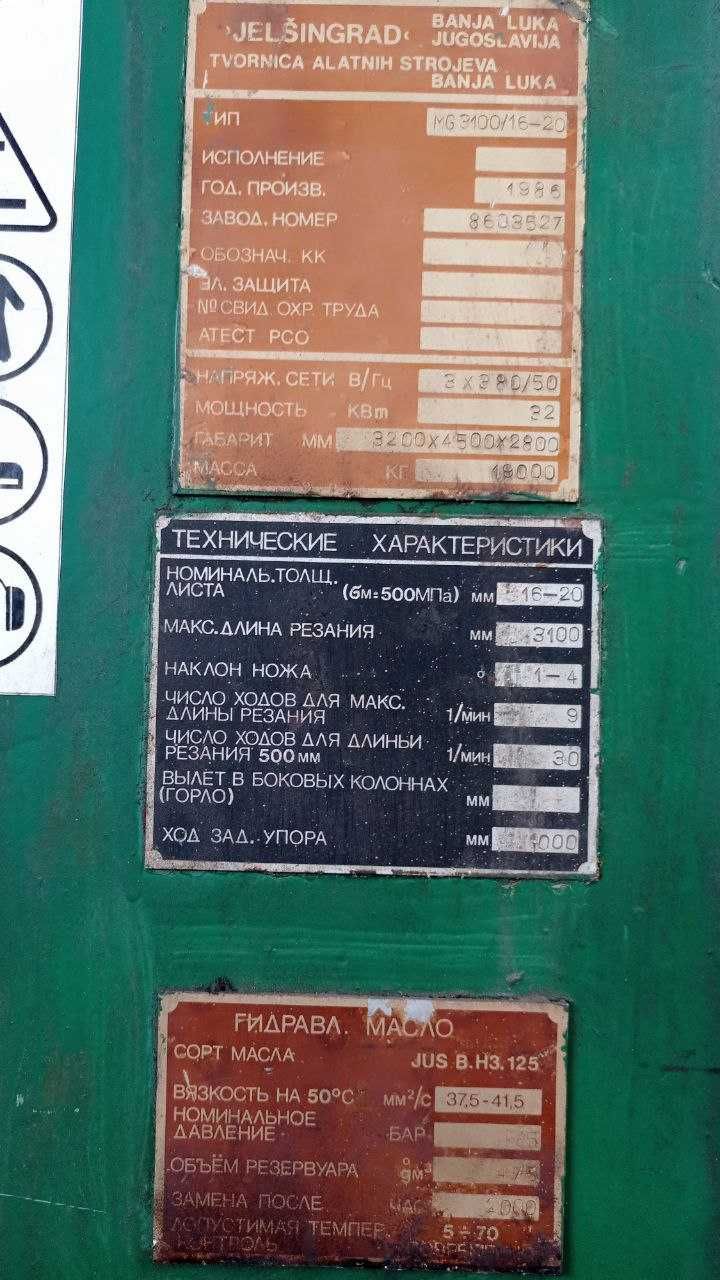 ›JELŠINGRAD‹ BANJA LUKA
JUGOSLAVIJA
TVORNICA ALATNIH STROJEVA
BANJA LUKA
ТИП MG3100/16-20
ИСПОЛНЕНИЕ
ГОД. ПРОИЗВ. 1986
ЗАВОД. НОМЕР 8603527
ОБОЗНАЧ. КК
ЭЛ. ЗАЩИТА
№ СВИД. ОХР. ТРУДА
АТЕСТ РСО
НАПРЯЖ. СЕТИ В/Гц 3X380/50
МОЩНОСТЬ КВт 32
ГАБАРИТ ММ 3200X4500X2800
МАССА КГ 18000
ТЕХНИЧЕСКИЕ ХАРАКТЕРИСТИКИ
НОМИНАЛЬ. ТОЛЩ.
ЛИСТА (бм=500МПа) мм 16-20
МАКС. ДЛИНА РЕЗАНИЯ мм 3100
НАКЛОН НОЖА ° 1-4
ЧИСЛО ХОДОВ ДЛЯ МАКС.
ДЛИНЫ РЕЗАНИЯ 1/мин 9
ЧИСЛО ХОДОВ ДЛЯ ДЛИНЬИ
РЕЗАНИЯ 500 мм 1/мин 30
ВЫЛЕТ В БОКОВЫХ КОЛОННАХ
(ГОРЛО) мм -
ХОД ЗАД. УПОРА мм 1000
ГИДРАВЛ. МАСЛО
СОРТ МАСЛА JUS B.H3.125
ВЯЗКОСТЬ НА 50°C мм²/с 37,5-41,5
НОМИНАЛЬНОЕ
ДАВЛЕНИЕ БАР
ОБЪЁМ РЕЗЕРВУАРА
ЗАМЕНА ПОСЛЕ ЧАС 2000
ДОПУСТИМАЯ ТЕМПЕР. 5÷70
КОНТРОЛЬ